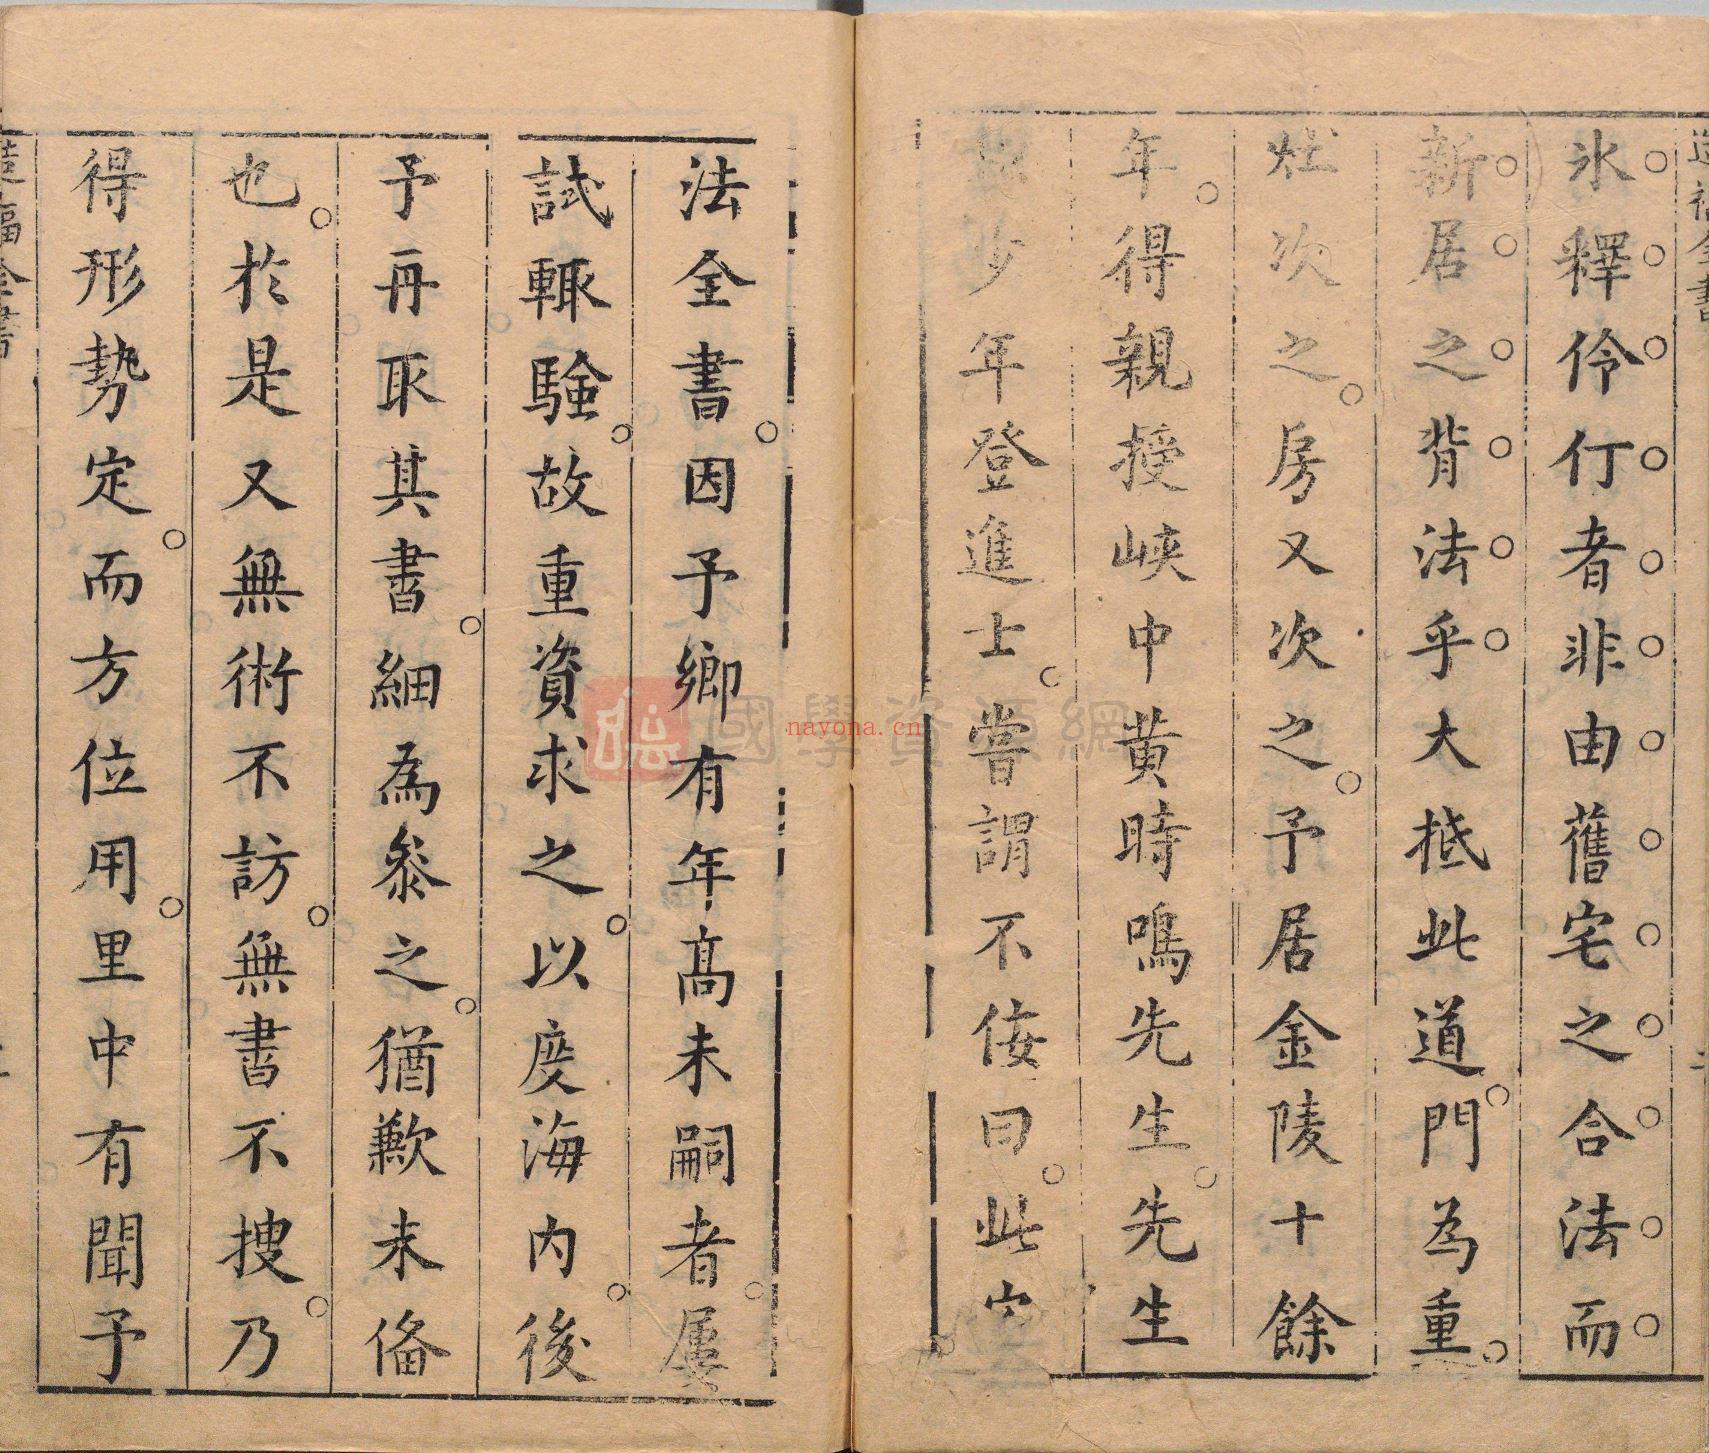 造福全書
氷釋伶仃者非由舊宅之合法而
新居之背法乎大抵此道門爲重
灶次之房又次之予居金陵十餘
年得親授峽中黄時鳴先生先生
少年登進士嘗謂不侫曰此宅
法全書因予鄉有年髙未嗣者屢
試輙驗故重資求之以度海内後
予再取其書細為叅之猶歉未俻
也於是又無術不訪無書不搜乃
得形勢定而方位用里中有聞予
造福全書
國學資源網
nayona.cn